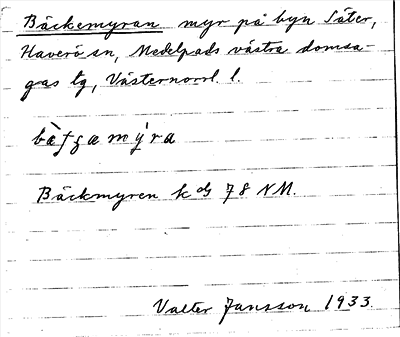 Bäckemyran myr på byn Säter,
Haverö sn, Medelpads västra domsa-
gas tg, Västernorrl. l.
Bäckmyren k 78 NM.
Valter Jansson 1933.